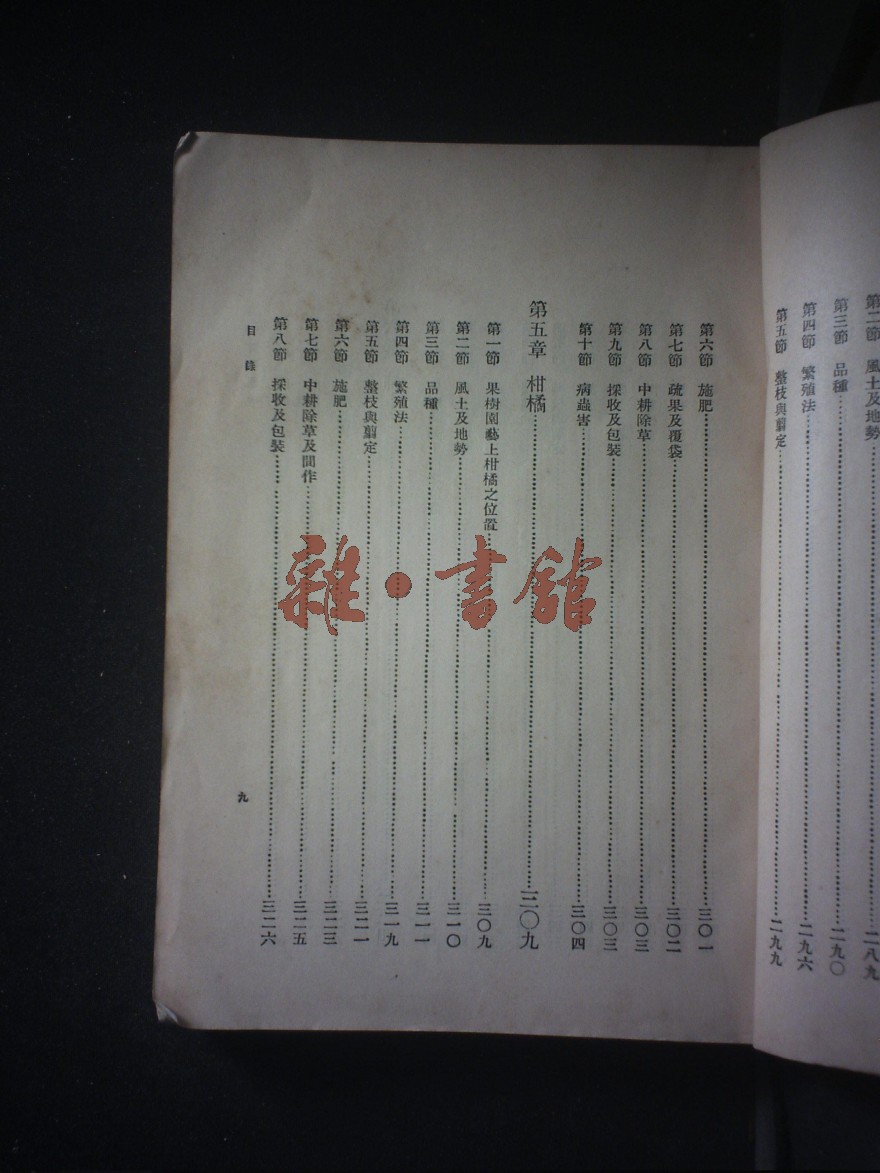 第二節 風土及地勢……二八九
第三節 品種……二九〇
第四節 繁殖法……二九六
第五節 整枝與翦定……二九九
第六節 施肥……三〇一
第七節 疏果及覆袋……三〇二
第八節 中耕除草……三〇三
第九節 採收及包裝……三〇三
第十節 病蟲害……三〇四
第五章 柑橘……三〇九
第一節 果樹園藝上柑橘之位置……三〇九
第二節 風土及地勢……三一〇
第三節 品種……三一一
第四節 繁殖法……三一九
第五節 整枝與翦定……三二一
第六節 施肥……三二三
第七節 中耕除草及間作……三二五
第八節 採收及包裝……三二六
目錄
九
雜·書館